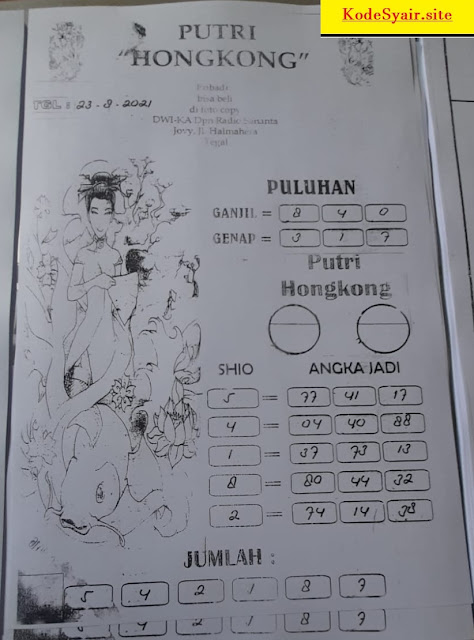 KodeSyair.site
PUTRI
"HONGKONG"
Pribadi
bisa beli
di fotocopy
Jovy, Jl. Halmahera
Tegal
TGL : 23-8-2021
PULUHAN
GANJIL = 8 4 0
GENAP = 3 1 7
Putri
Hongkong
SHIO ANGKA JADI
5 = 77 41 17
4 = 04 40 88
1 = 37 73 13
8 = 80 44 32
2 = 74 14 38
JUMLAH :
5 4 2 1 8 7
5 4 2 1 8 7